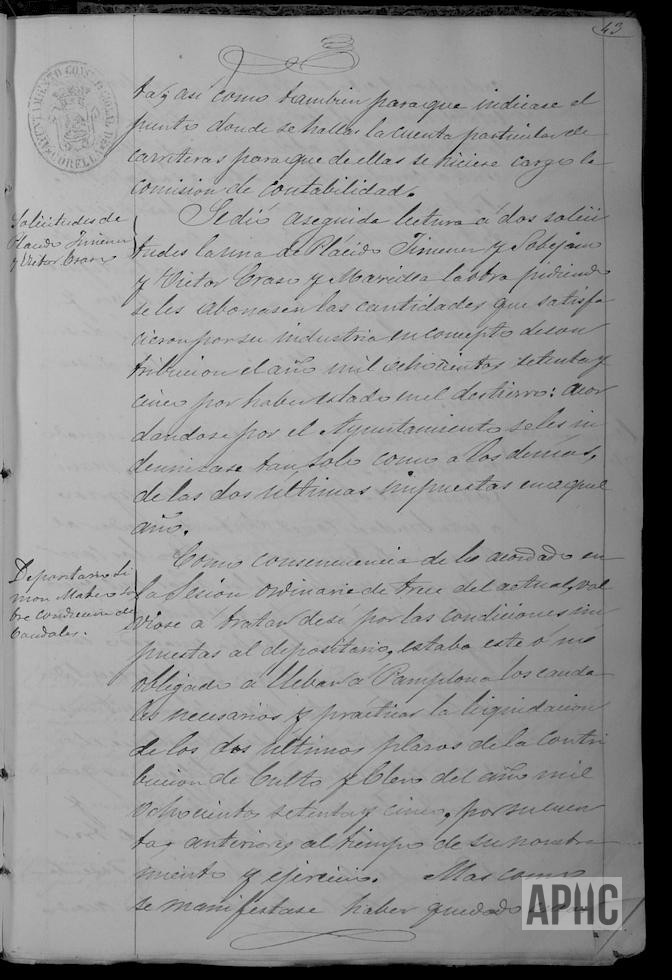 43
AYUNTAMIENTO CONSTITUCIONAL DE CORELLA
ta, así como tambien para que indicase el
punto donde se hallas la cuenta particular de
carreteras para que de ellas se hiciese cargo la
comision de contabilidad.
Solicitudes de
Placido Jimenez
y Victor Craso
Se dió aseguida lectura á dos solici
tudes la una de Plácido Jimenez y Sobejano
y Victor Craso y la otra pidiendo
se les abonasen las cantidades que satisfa
cieron por su industria en concepto de con
tribucion el año mil ochocientos setenta y
cinco por haber estado en el destierro: acor
dandose por el Ayuntamiento se les in
demnizase tan solo como a los demas,
de las dos ultimas impuestas en aquel
año.
Depositario Si
mon Mateo so
bre conduccion de
Caudales.
Como consecuencia de lo acordado en
la sesion ordinaria de trece del actual, vol
viose a tratar de si por las condiciones im
puestas al depositario, estaba este ó no
obligado á llebar á Pamplona los cauda
les necesarios y practicar la liquidacion
de los dos ultimos plazos de la Contri
bucion de Culto y Clero del año mil
ochocientos setenta y cinco, por su cuen
ta, anteriores al tiempo de su nombra
miento y ejercicio. Mas como
se manifestase haber quedado
APHC